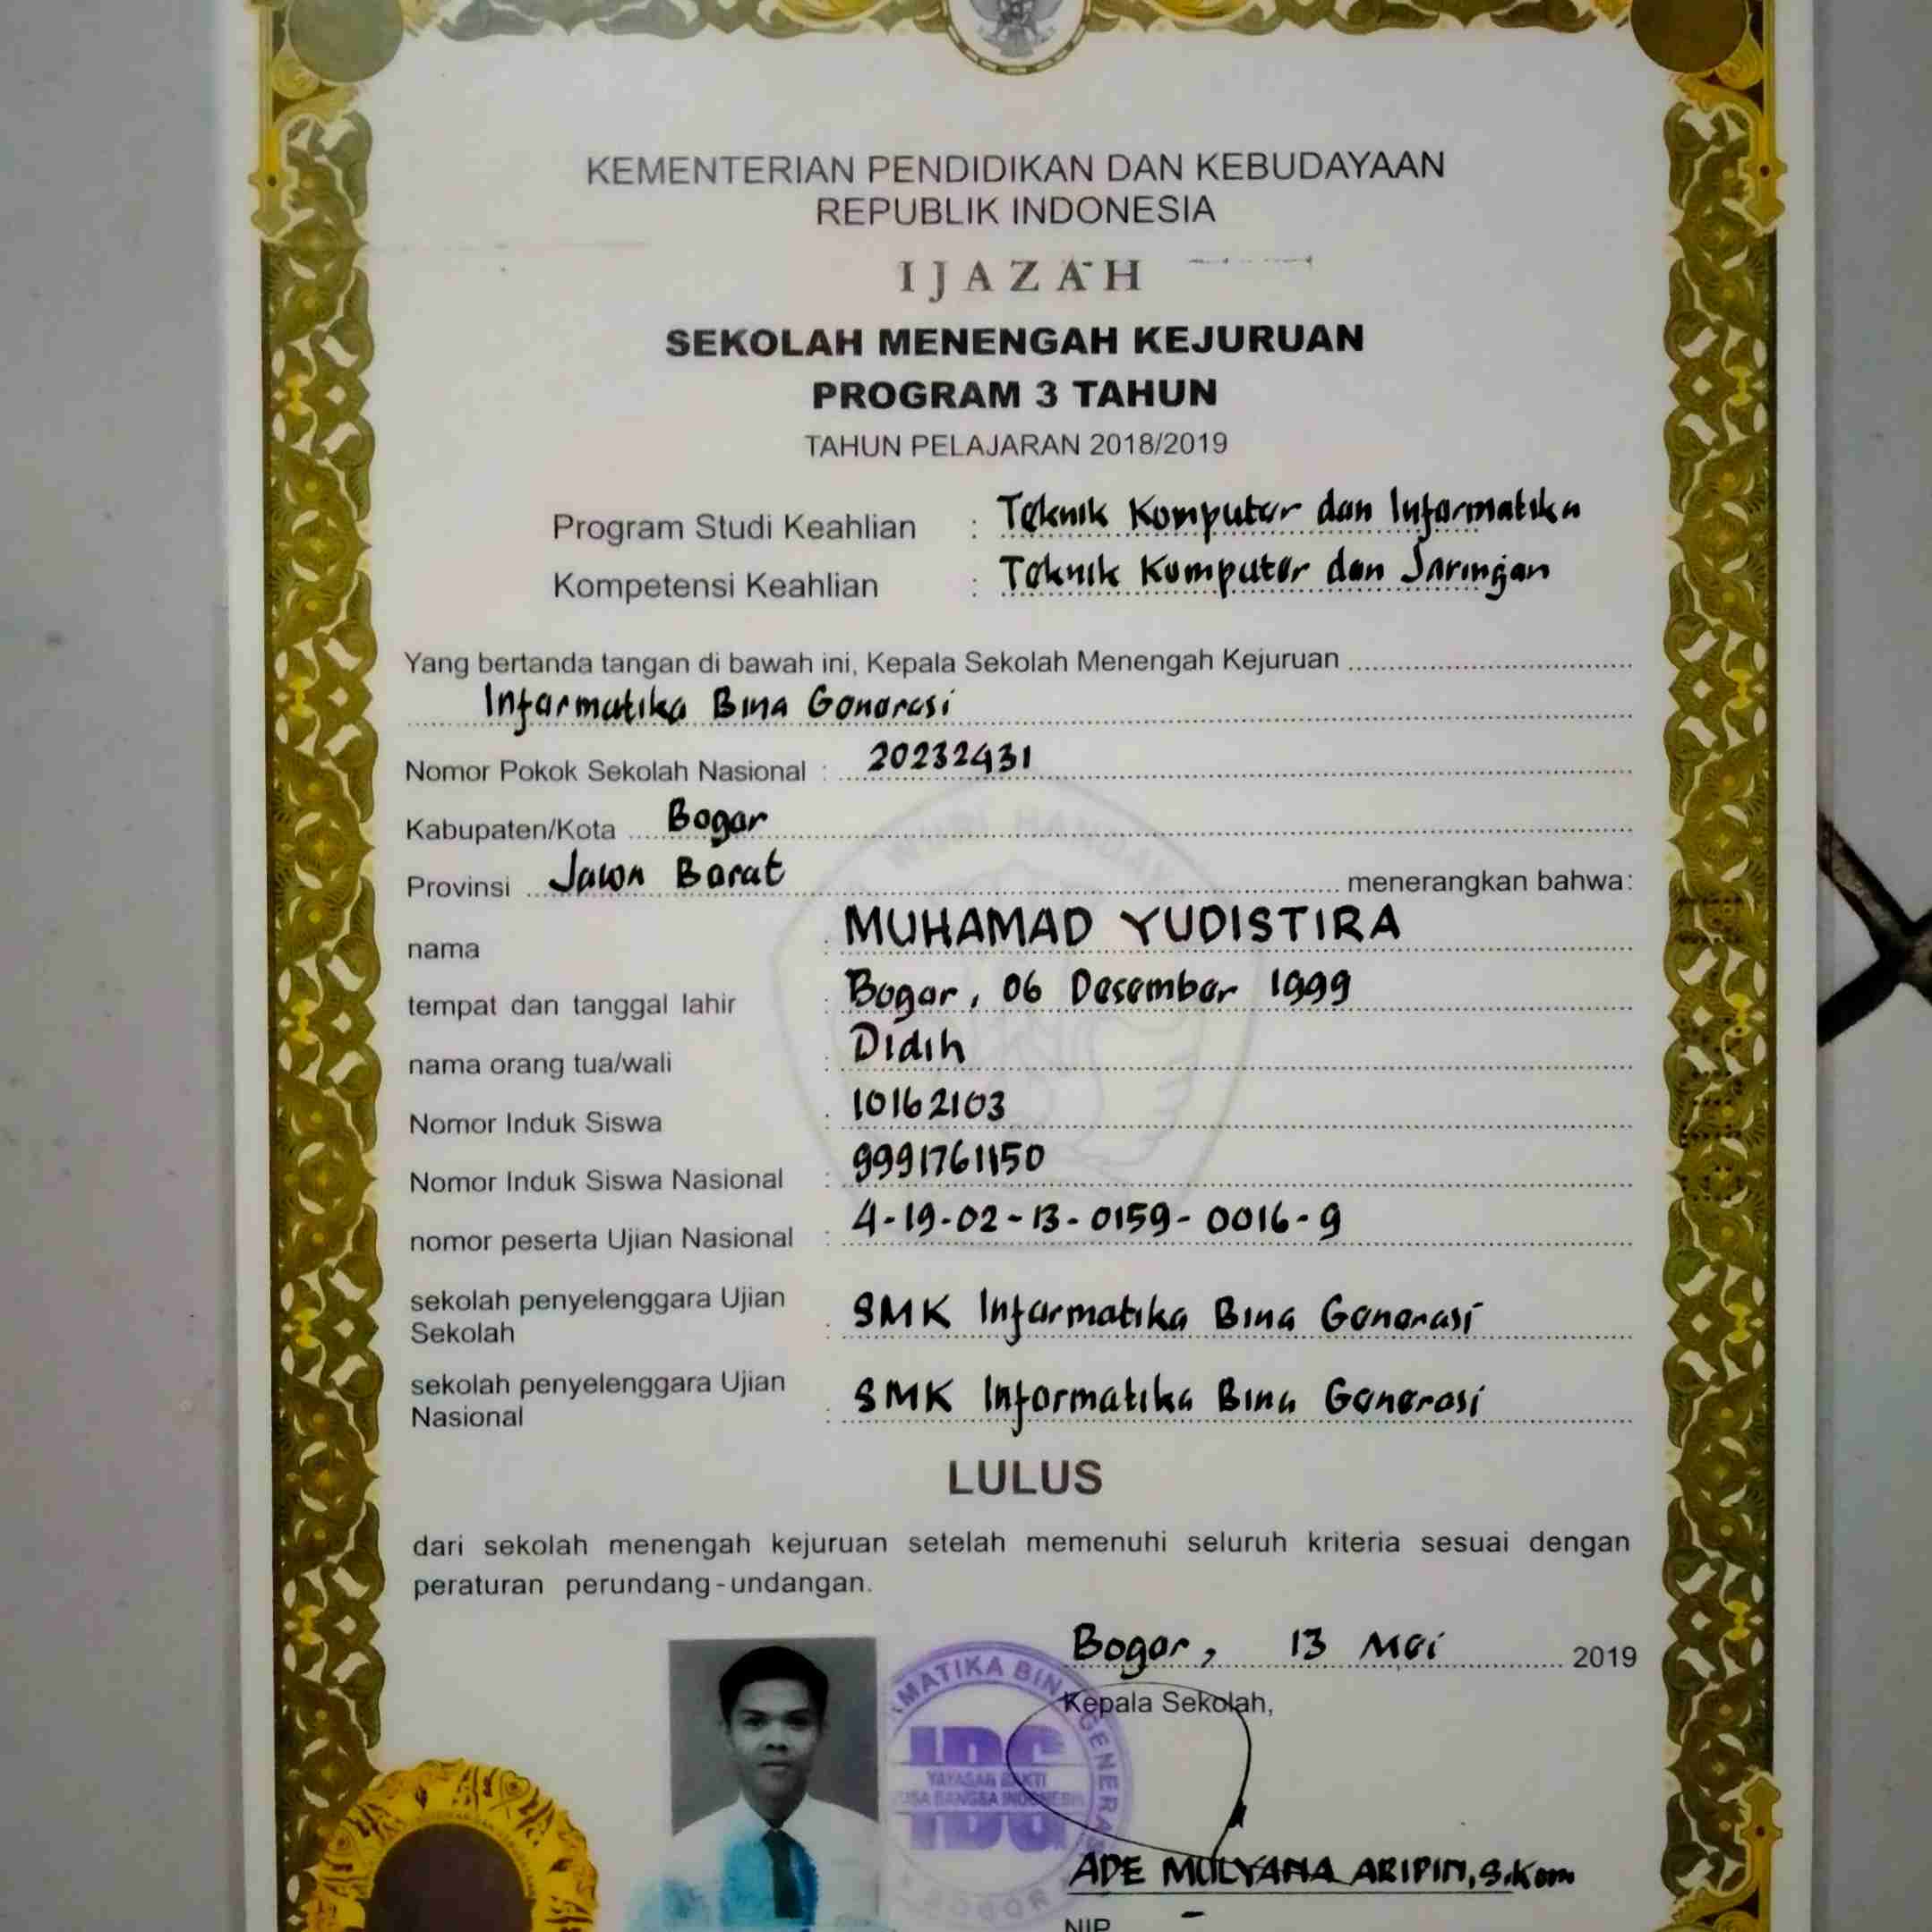 KEMENTERIAN PENDIDIKAN DAN KEBUDAYAAN
REPUBLIK INDONESIA
IJAZAH
SEKOLAH MENENGAH KEJURUAN
PROGRAM 3 TAHUN
TAHUN PELAJARAN 2018/2019
Program Studi Keahlian : Teknik Komputer dan Informatika
Kompetensi Keahlian : Teknik Komputer dan Jaringan
Yang bertanda tangan di bawah ini, Kepala Sekolah Menengah Kejuruan
Informatika Bina Generasi
Nomor Pokok Sekolah Nasional : 20232431
Kabupaten/Kota Bogor
Provinsi Jawa Barat menerangkan bahwa:
nama : MUHAMAD YUDISTIRA
tempat dan tanggal lahir : Bogor, 06 Desember 1999
nama orang tua/wali : Didih
Nomor Induk Siswa : 10162103
Nomor Induk Siswa Nasional : 9991761150
nomor peserta Ujian Nasional : 4-19-02-13-0159-0016-9
sekolah penyelenggara Ujian
Sekolah : SMK Informatika Bina Generasi
sekolah penyelenggara Ujian
Nasional : SMK Informatika Bina Generasi
LULUS
dari sekolah menengah kejuruan setelah memenuhi seluruh kriteria sesuai dengan
peraturan perundang-undangan.
Bogor, 13 Mei 2019
Kepala Sekolah,
MATIKA BINA GENERASI
IBG
YAYASAN BAKTI
NUSA BANGSA INDONESIA
IBG
BOGOR
ADE MULYANA ARIPIN, S.Kom
NIP -